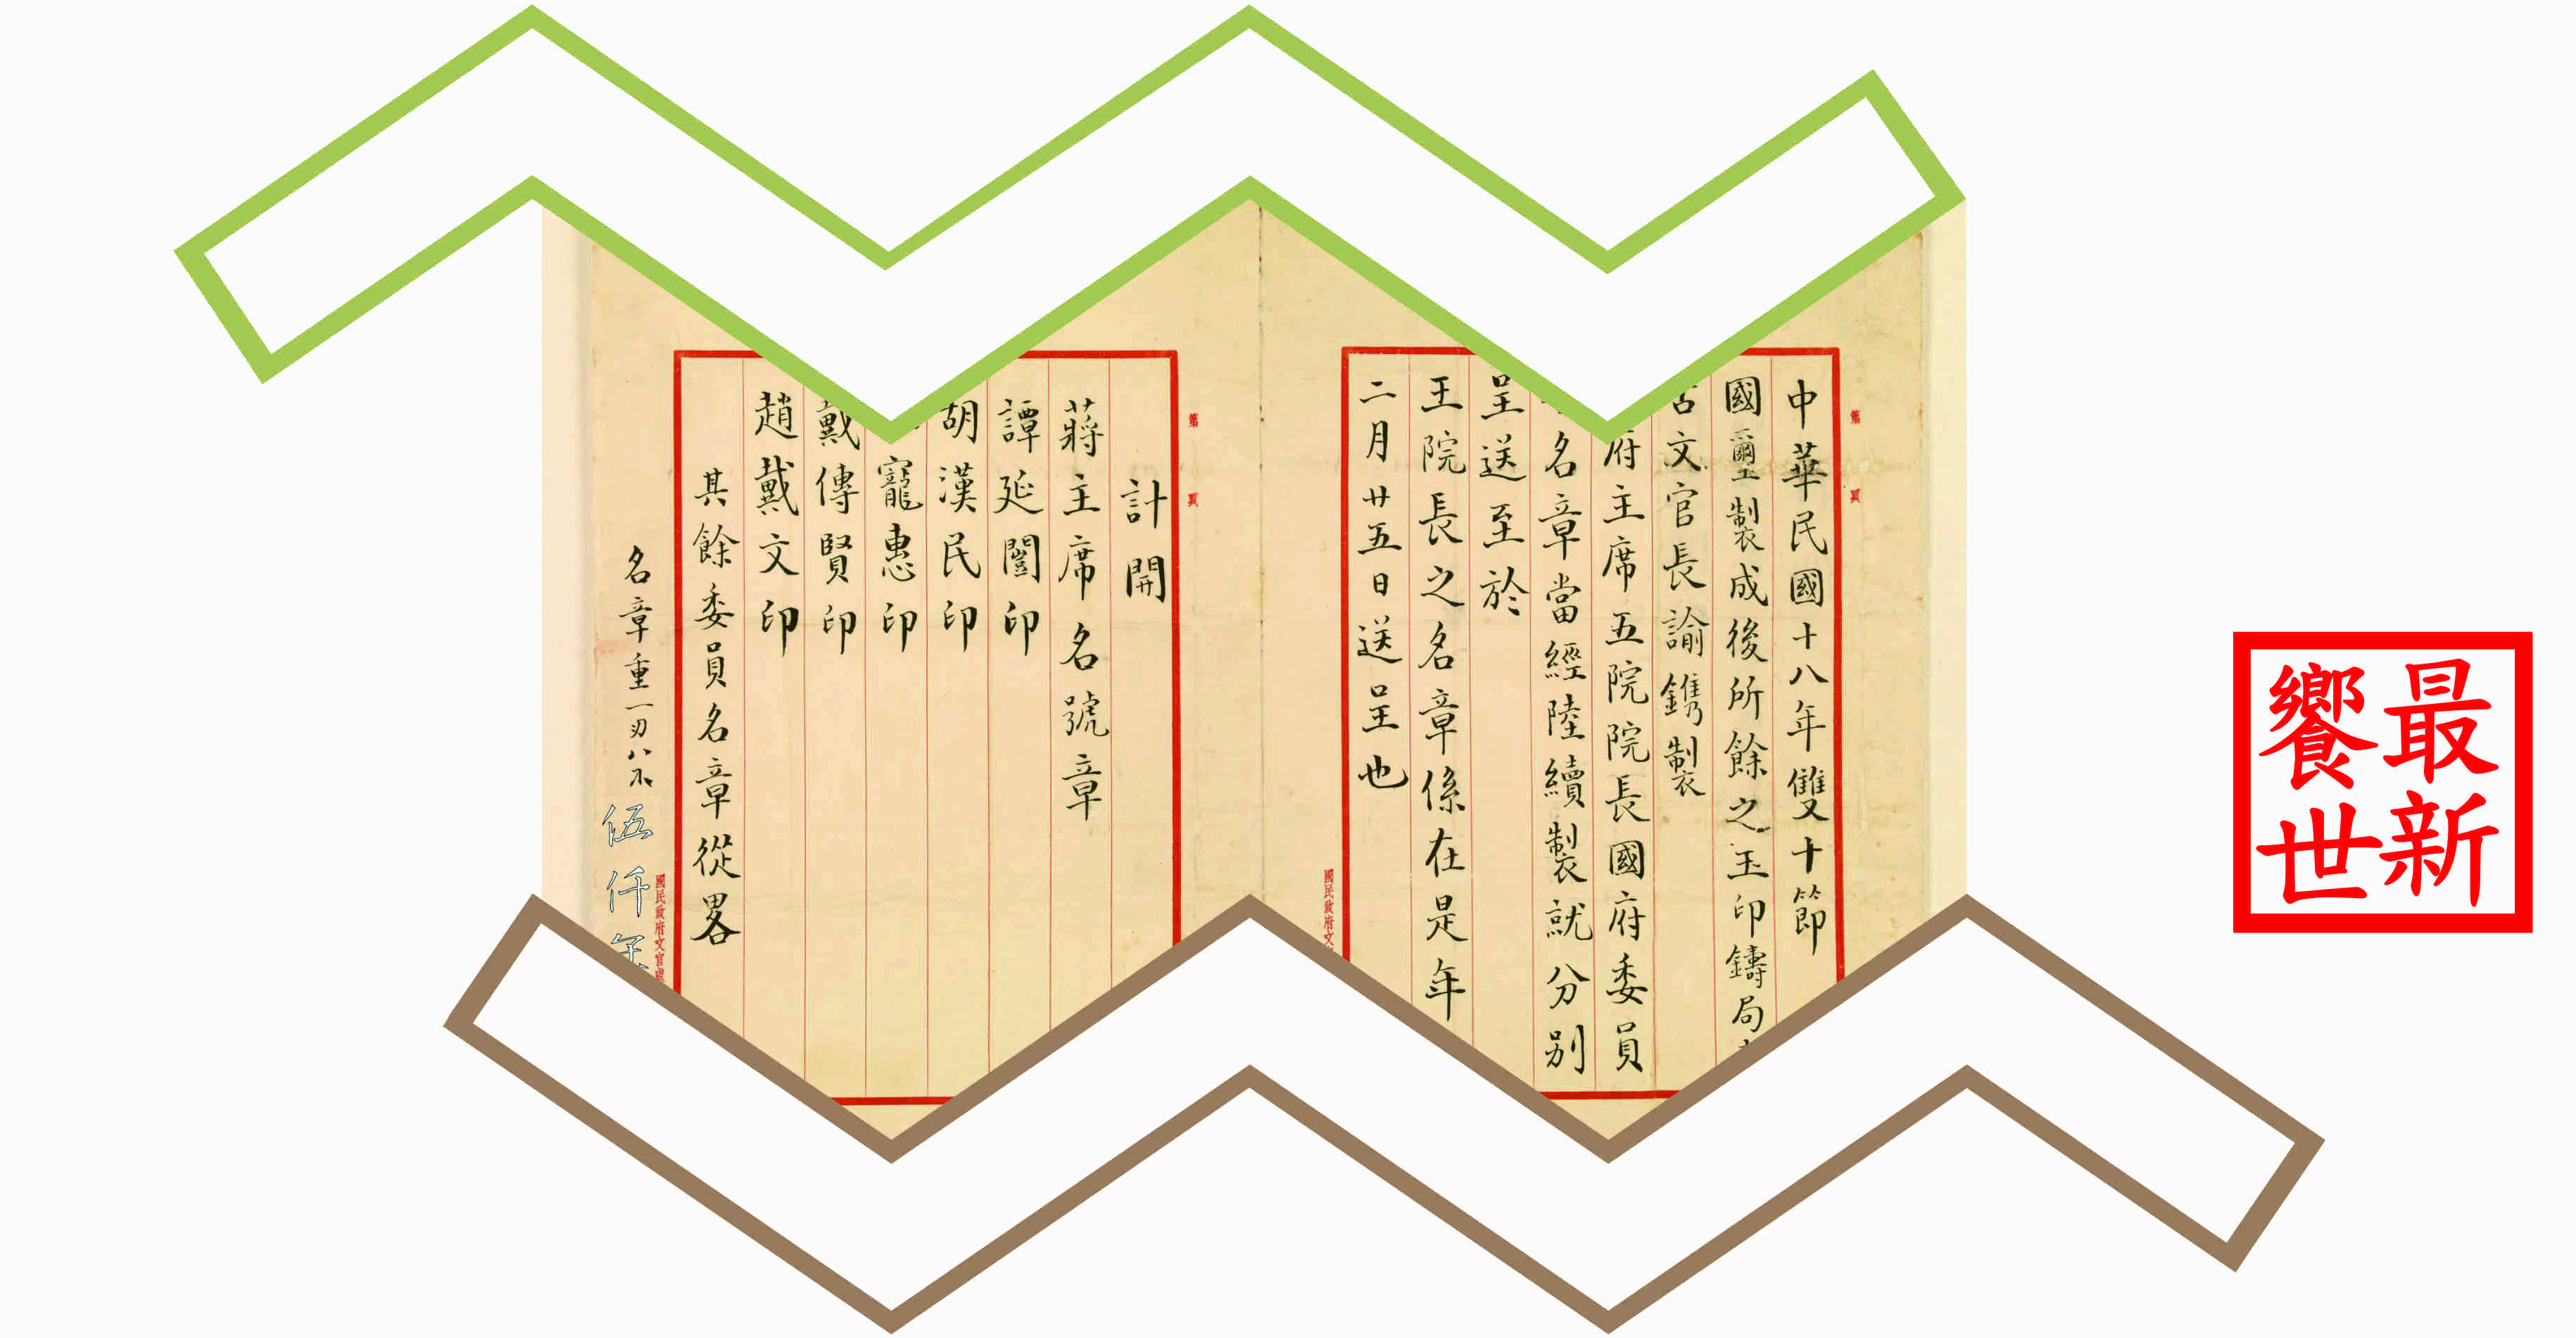 中華民國十八年雙十節
國璽製成後所餘之玉印鑄局
文官長諭鐫製
府主席五院院長國府委員
名章當經陸續製就分別
呈送至於
王院長之名章係在是年
二月廿五日送呈也
第 頁
國民政府文
計開
蔣主席名號章
譚延闓印
胡漢民印
寵惠印
戴傳賢印
趙戴文印
其餘委員名章從畧
第 頁
名章重一刄八
伍仟年
國民政府文官處
最新
饗世